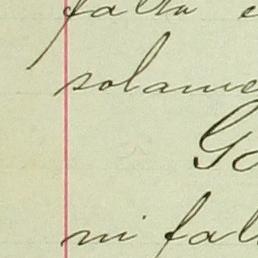 falta
solame
Go
ni fal